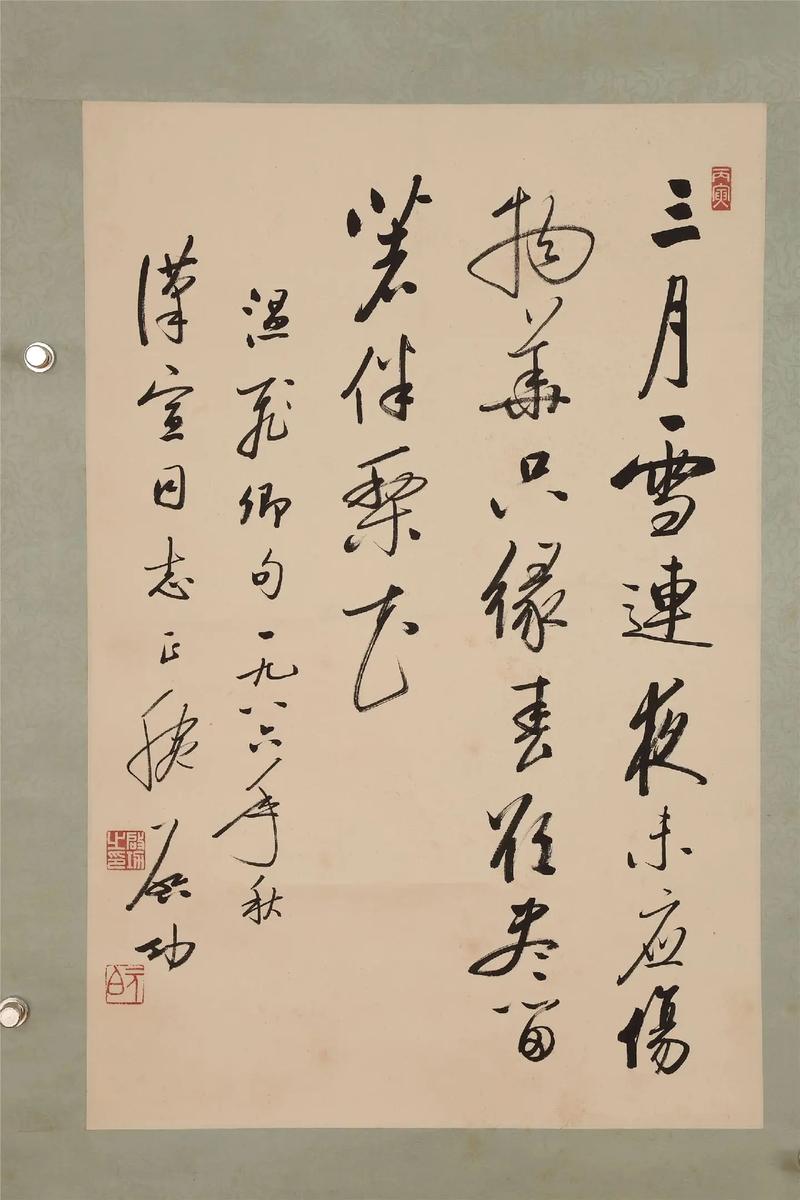 丙寅
三月雪連夜未應傷
物華只緣春欲盡留
著伴梨花
温飛卿句一九八六年秋
漢宣同志正腕啟功
啟功之印
元白